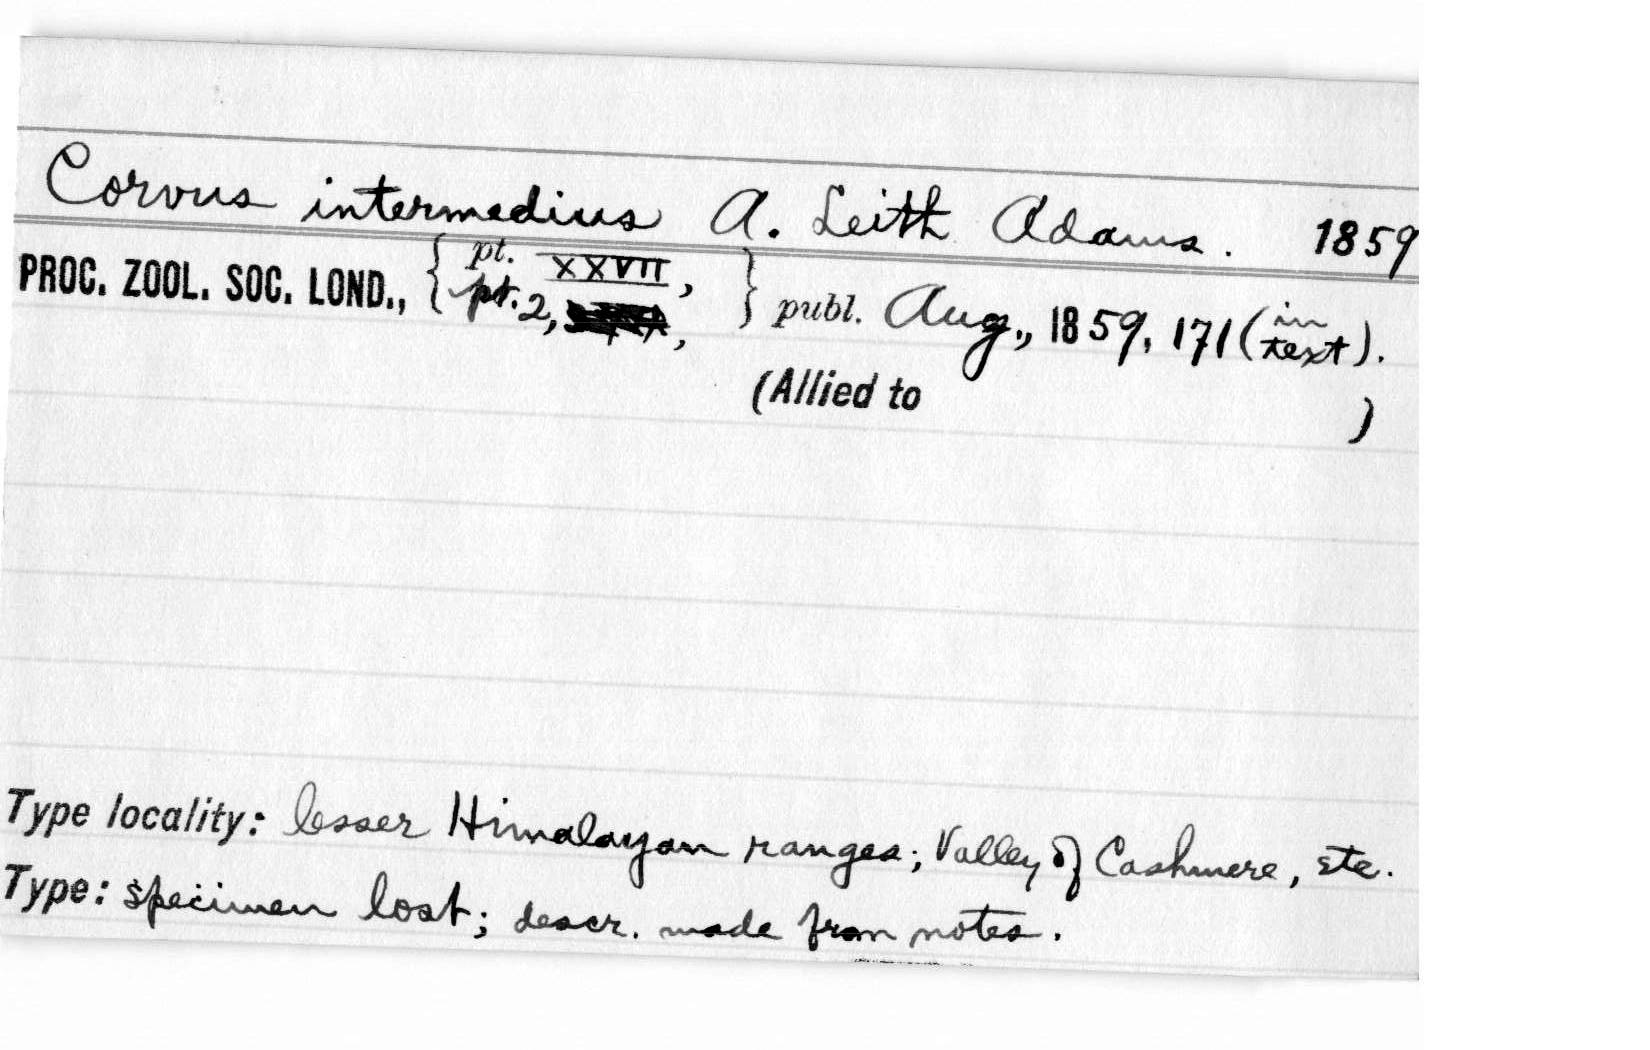 Corvus intermedius A. Leith Adams. 1859
PROC. ZOOL. SOC. LOND., { pt. XXVII, pt. 2, } publ. Aug., 1859, 171 (in text).
(Allied to )
Type locality: lesser Himalayan ranges; Valley of Cashmere, etc.
Type: specimen lost; descr. made from notes.